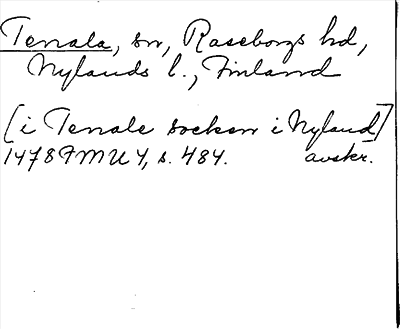 Tenala, sn, Raseborgs hd,
Nylands l., Finland
[i Tenale socken i Nyland]
1478 FMU 4, s. 484. avskr.